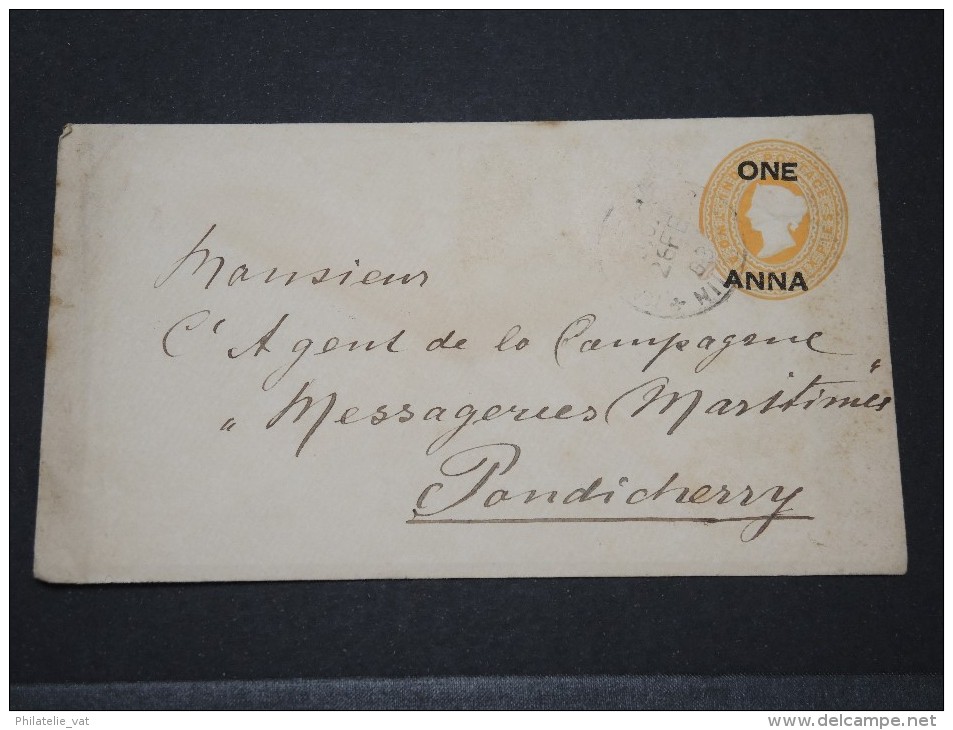 ONE
ANNA
26 FE
Monsieur
L'Agent de la Compagnie
"Messageries Maritimes"
Pondicherry
Philatelie_vat
www.delcampe.net